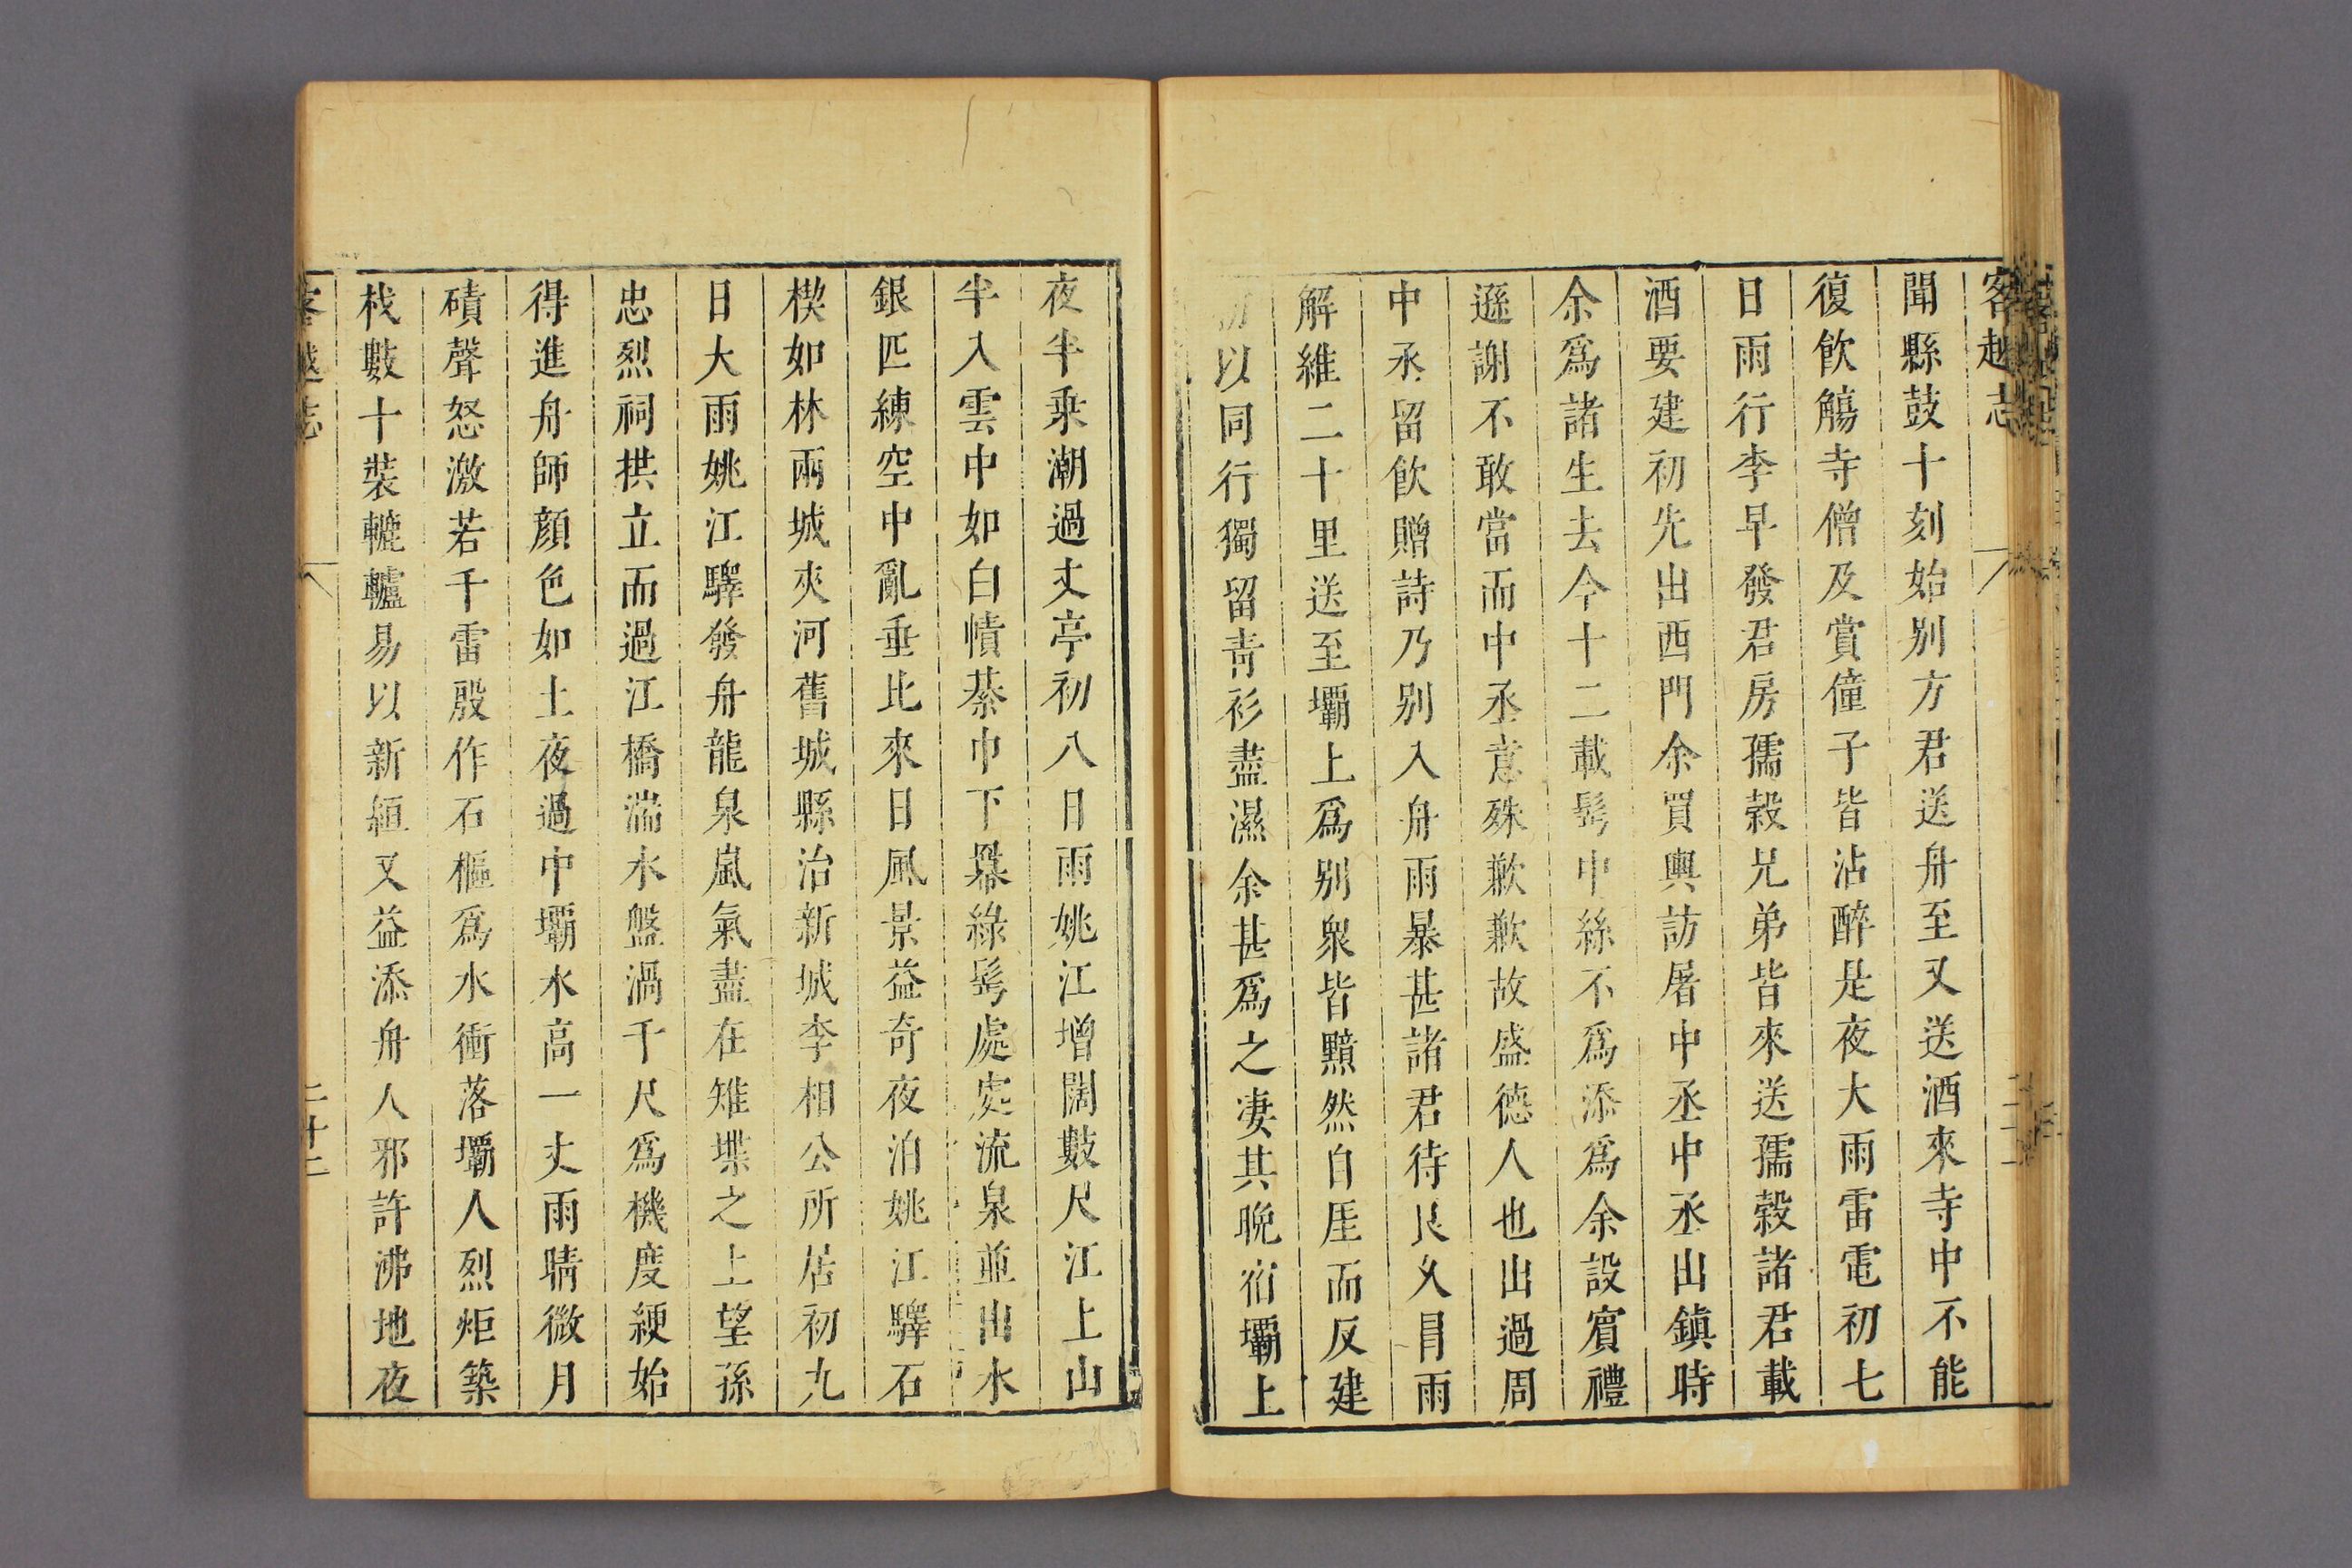 客越志
聞縣鼓十刻始別方君送舟至又送酒來寺中不能
復飲觴寺僧及賞僮子皆沾醉是夜大雨雷電初七
日雨行李早發君房孺穀兄弟皆來送孺穀諸君載
酒要建初先出西門余買輿訪屠中丞中丞出鎮時
余爲諸生去今十二載髩中絲不爲添爲余設賓禮
遜謝不敢當而中丞意殊歉歉故盛德人也出過周
中丞留飲贈詩乃別入舟雨暴甚諸君待良久冐雨
解維二十里送至壩上爲別衆皆黯然自厓而反建
初以同行獨留靑衫盡濕余甚爲之凄其晚宿壩上
夜半乗潮過丈亭初八日雨姚江增闊數尺江上山
半入雲中如白幘綦巾下羃綠髩處處流泉並出水
銀匹練空中亂垂比來日風景益奇夜泊姚江驛石
楔如林兩城夾河舊城縣治新城李相公所居初九
日大雨姚江驛發舟龍泉嵐氣盡在雉堞之上望孫
忠烈祠拱立而過江橋湍水盤渦千尺爲機度綆始
得進舟師顔色如土夜過中壩水高一丈雨晴微月
磧聲怒激若千雷殷作石樞爲水衝落壩人烈炬築
栈數十裝轆轤易以新絙又益添舟人邪許沸地夜
客越志
二十二